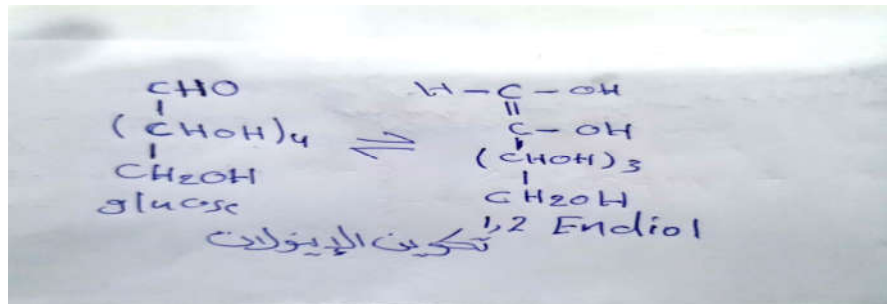 CHO
(CHOH)4
CH2OH
glucose
⇌
H-C-OH
||
C-OH
(CHOH)3
CH2OH
1,2 Endiol
تكوين الإينولات